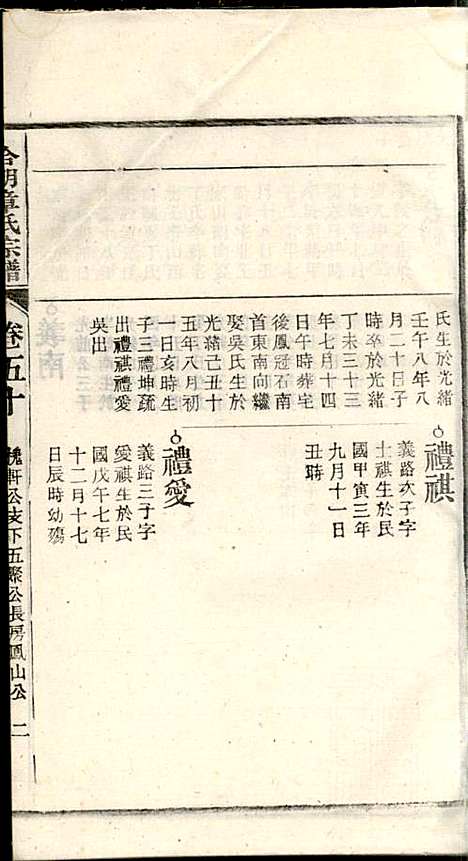 氏生於光緒
壬午八年八
月二十日子
時卒於光緒
丁未三十三
年七月十四
日午時葬宅
後鳳冠石南
首東南向繼
娶吳氏生於
光緒己丑十
五年八月初
一日亥時生
子三禮坤疏
出禮祺禮愛
吳出
禮祺
義路次子字
士祺生於民
國甲寅三年
九月十一日
丑時
禮愛
義路三子字
愛祺生於民
國戊午七年
十二月十七
日辰時幼殤
章氏宗譜
卷五十
槐軒公支下五際公長房鳳山公
二